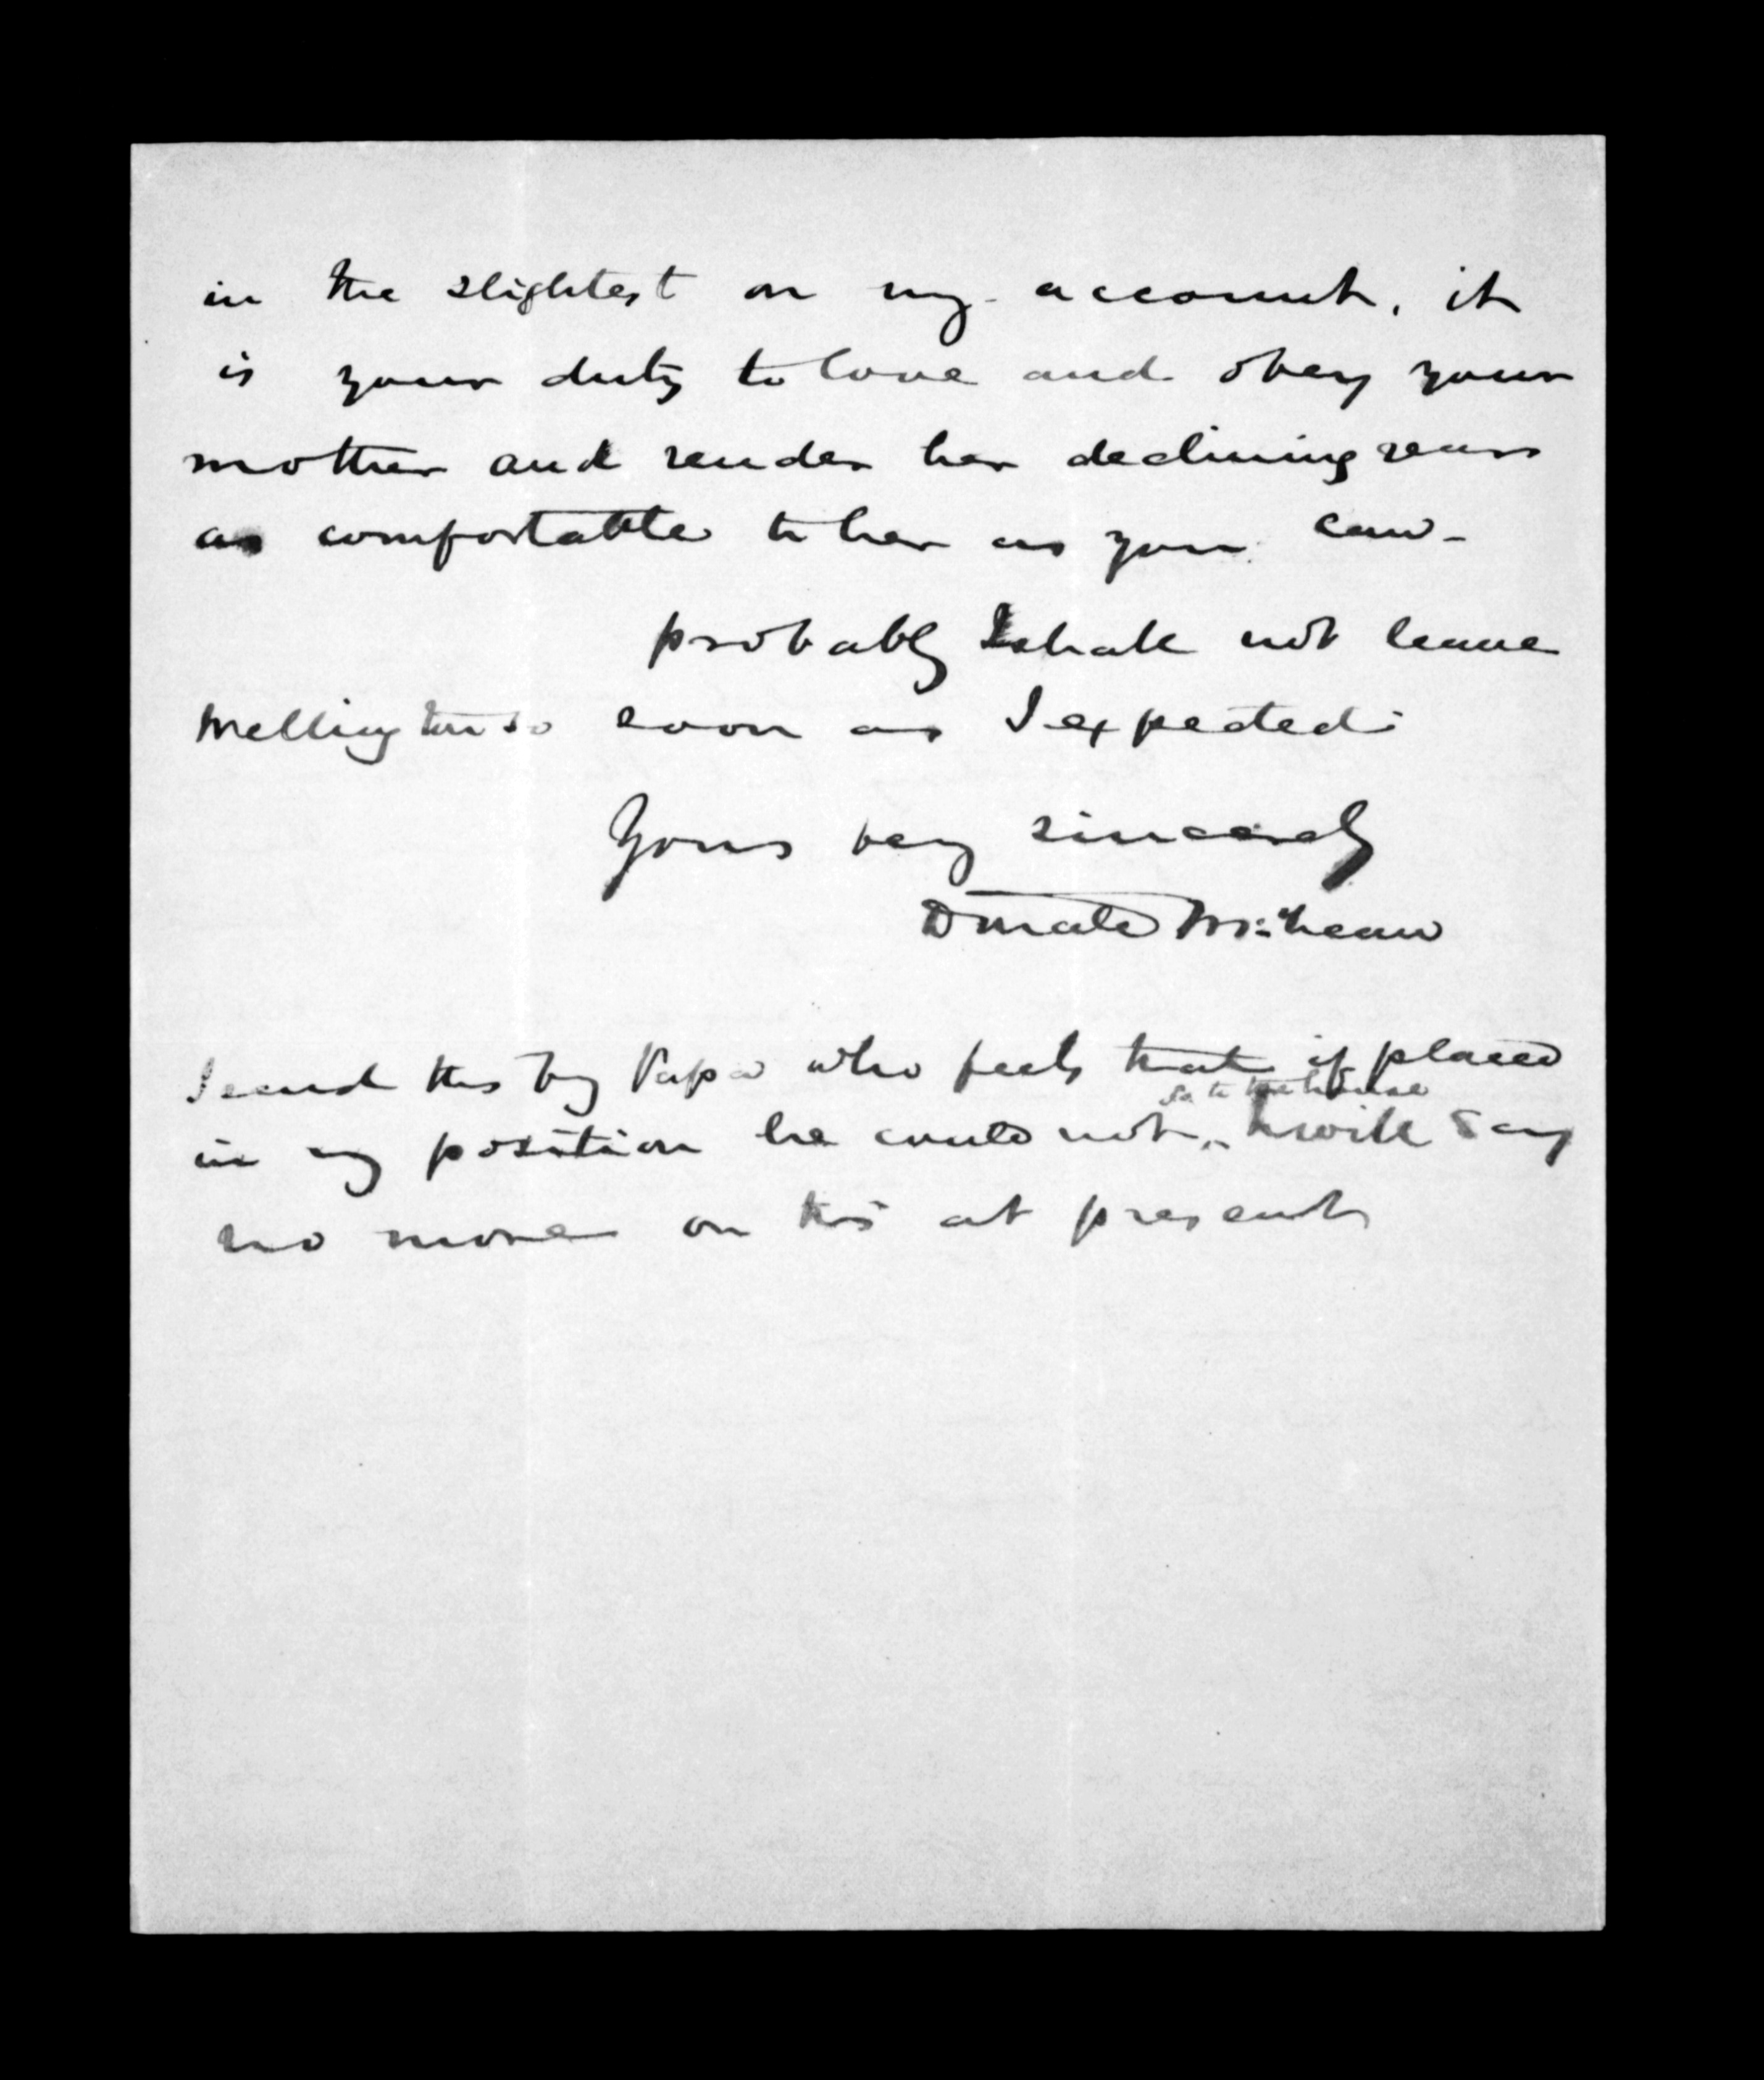 in the slightest on my account, it
is your duty to love and obey your
mother and render her declining years
as comfortable to her as you can -
probably I shall not leave
Wellington so soon as I expected
Yours very sincerely
Donald McLean
I send this by Papa who feels that if placed
go to the house
in my position he could not, I will say
no more on this at present